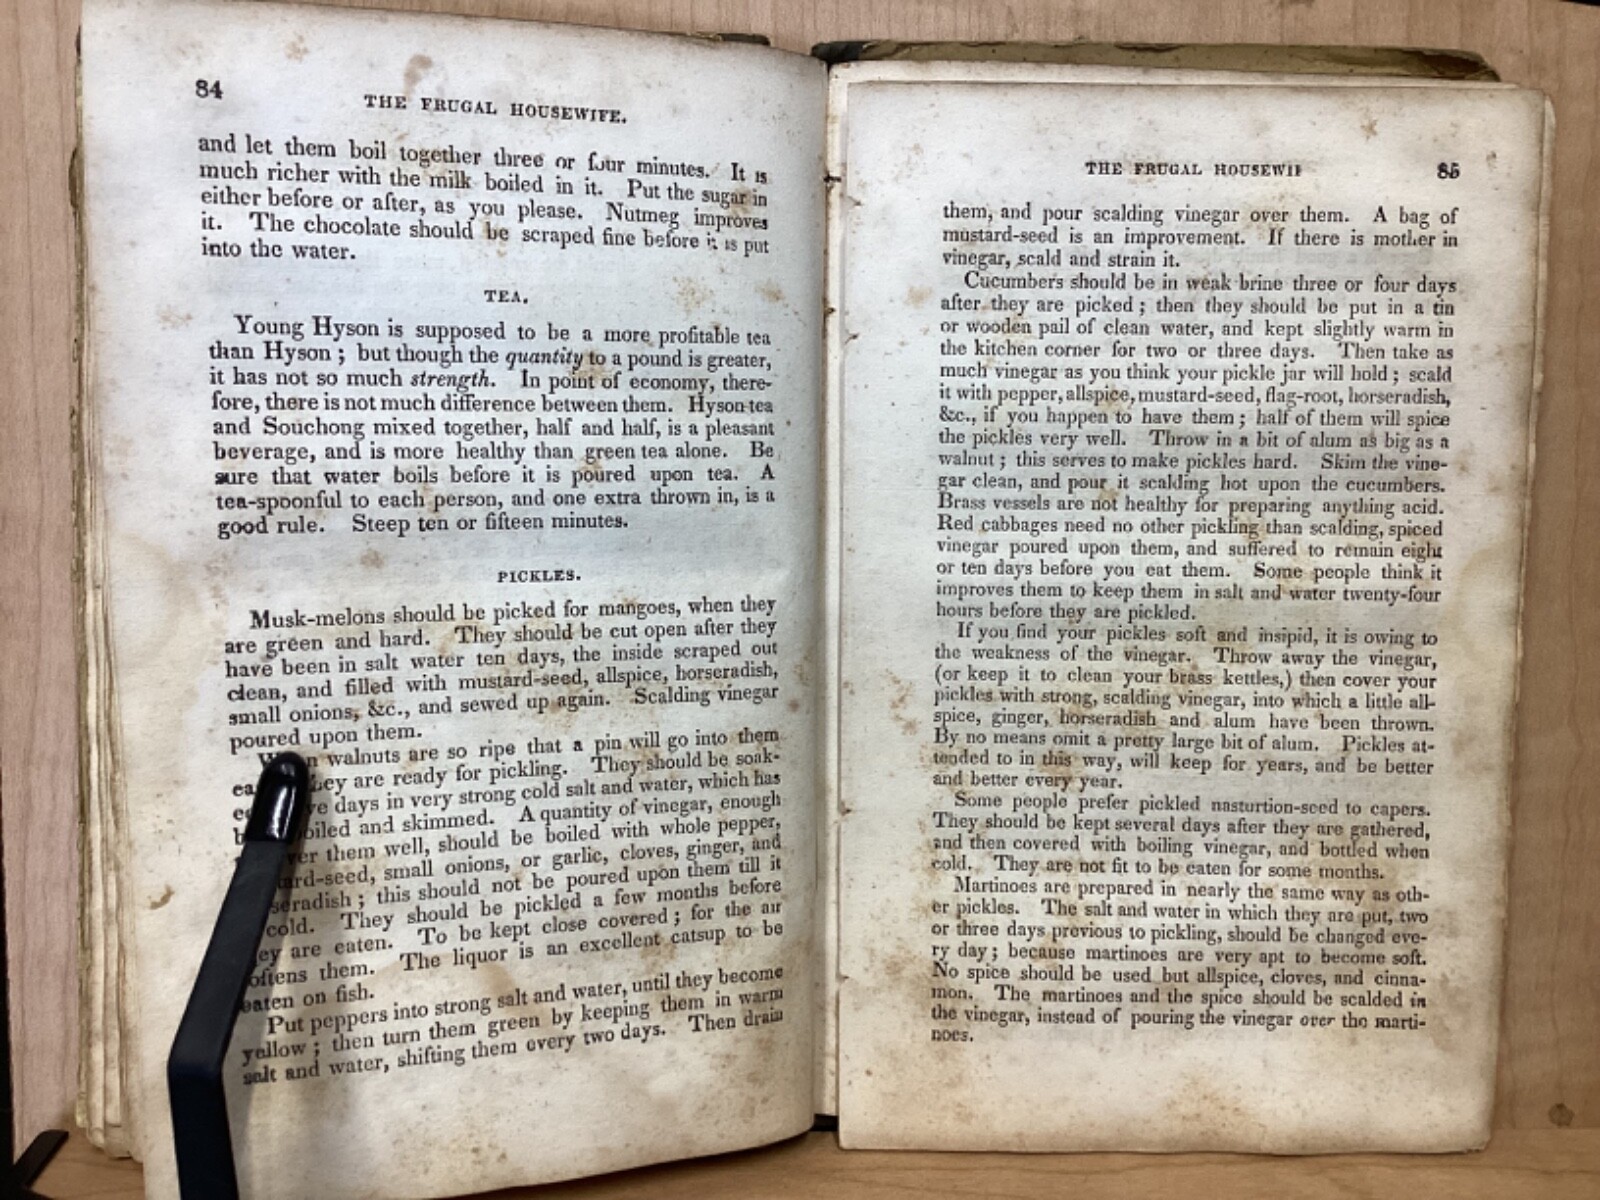 84
THE FRUGAL HOUSEWIFE.
and let them boil together three or four minutes. It is
much richer with the milk boiled in it. Put the sugar in
either before or after, as you please. Nutmeg improves
it. The chocolate should be scraped fine before it is put
into the water.
TEA.
Young Hyson is supposed to be a more profitable tea
than Hyson; but though the quantity to a pound is greater,
it has not so much strength. In point of economy, there-
fore, there is not much difference between them. Hyson tea
and Souchong mixed together, half and half, is a pleasant
beverage, and is more healthy than green tea alone. Be
sure that water boils before it is poured upon tea. A
tea-spoonful to each person, and one extra thrown in, is a
good rule. Steep ten or fifteen minutes.
PICKLES.
Musk-melons should be picked for mangoes, when they
are green and hard. They should be cut open after they
have been in salt water ten days, the inside scraped out
clean, and filled with mustard-seed, allspice, horseradish,
small onions, &c., and sewed up again. Scalding vinegar
poured upon them.
walnuts are so ripe that a pin will go into them
they are ready for pickling. They should be soak-
days in very strong cold salt and water, which has
boiled and skimmed. A quantity of vinegar, enough
them well, should be boiled with whole pepper,
small onions, or garlic, cloves, ginger, and
this should not be poured upon them till it
cold. They should be pickled a few months before
are eaten. To be kept close covered; for the air
them. The liquor is an excellent catsup to be
eaten on fish.
Put peppers into strong salt and water, until they become
yellow; then turn them green by keeping them in warm
salt and water, shifting them every two days. Then drain
THE FRUGAL HOUSEWIF
85
them, and pour scalding vinegar over them. A bag of
mustard-seed is an improvement. If there is mother in
vinegar, scald and strain it.
Cucumbers should be in weak brine three or four days
after they are picked; then they should be put in a tin
or wooden pail of clean water, and kept slightly warm in
the kitchen corner for two or three days. Then take as
much vinegar as you think your pickle jar will hold; scald
it with pepper, allspice, mustard-seed, flag-root, horseradish,
&c., if you happen to have them; half of them will spice
the pickles very well. Throw in a bit of alum as big as a
walnut; this serves to make pickles hard. Skim the vine-
gar clean, and pour it scalding hot upon the cucumbers.
Brass vessels are not healthy for preparing anything acid.
Red cabbages need no other pickling than scalding, spiced
vinegar poured upon them, and suffered to remain eight
or ten days before you eat them. Some people think it
improves them to keep them in salt and water twenty-four
hours before they are pickled.
If you find your pickles soft and insipid, it is owing to
the weakness of the vinegar. Throw away the vinegar,
(or keep it to clean your brass kettles,) then cover your
pickles with strong, scalding vinegar, into which a little all-
spice, ginger, horseradish and alum have been thrown.
By no means omit a pretty large bit of alum. Pickles at-
tended to in this way, will keep for years, and be better
and better every year.
Some people prefer pickled nasturtion-seed to capers.
They should be kept several days after they are gathered,
and then covered with boiling vinegar, and bottled when
cold. They are not fit to be eaten for some months.
Martinoes are prepared in nearly the same way as oth-
er pickles. The salt and water in which they are put, two
or three days previous to pickling, should be changed eve-
ry day; because martinoes are very apt to become soft.
No spice should be used but allspice, cloves, and cinna-
mon. The martinoes and the spice should be scalded in
the vinegar, instead of pouring the vinegar over the marti-
noes.